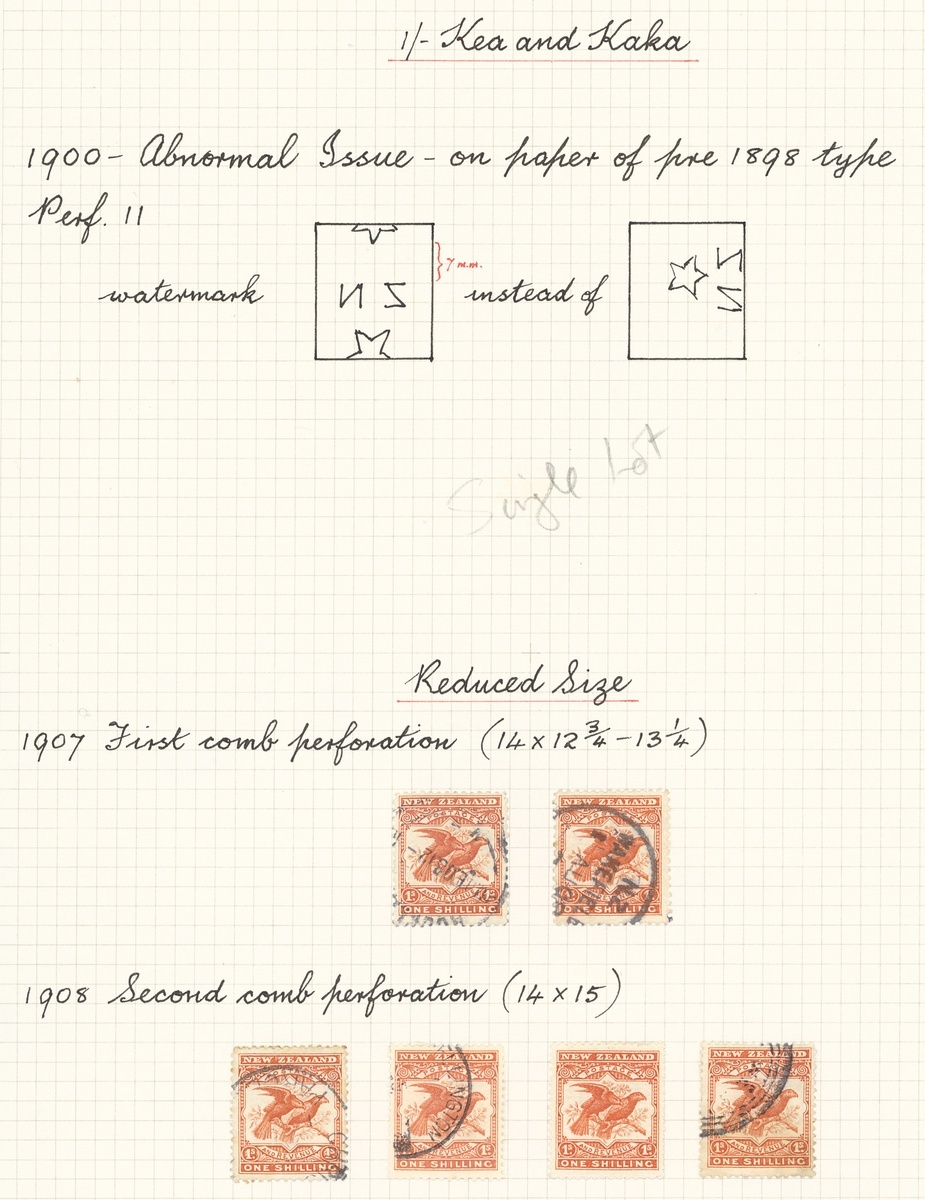 1/- Kea and Kaka
1900 - Abnormal Issue - on paper of pre 1898 type
Perf. 11
watermark
N Z
7 m.m.
instead of
N Z
Single Lot
Reduced Size
1907 First comb perforation (14 x 12 3/4 - 13 1/4)
NEW ZEALAND
POSTAGE
AND REVENUE
1s
ONE SHILLING
NEW ZEALAND
POSTAGE
AND REVENUE
1s
ONE SHILLING
N.Z
1908 Second comb perforation (14 x 15)
NEW ZEALAND
POSTAGE
AND REVENUE
1s 1s
ONE SHILLING
NEW ZEALAND
POSTAGE
AND REVENUE
1s 1s
ONE SHILLING
NGTON
NEW ZEALAND
POSTAGE
AND REVENUE
1s 1s
ONE SHILLING
NEW ZEALAND
POSTAGE
AND REVENUE
1s 1s
ONE SHILLING